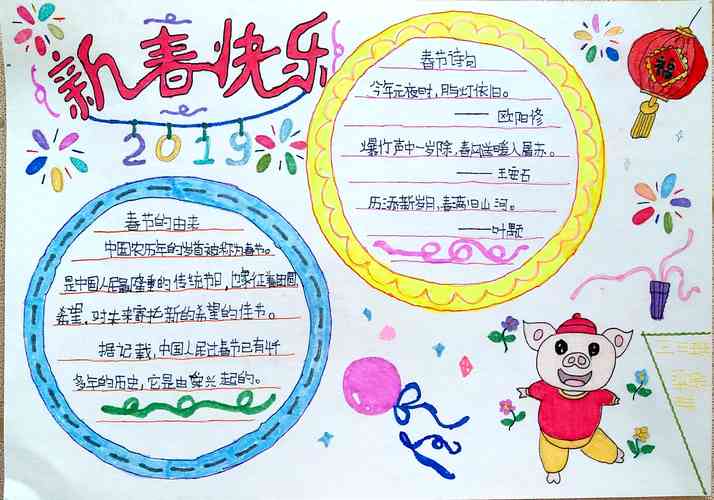 新春快乐
2019
春节诗句
今年元夜时，月与灯依旧。
——欧阳修
爆竹声中一岁除，春风送暖入屠苏。
——王安石
历添新岁月，春满旧山河。
——叶颙
福
春节的由来
中国农历年的岁首被称为春节。
是中国人民最隆重的传统节日，也象征着团圆，
希望，对未来寄托新的希望的佳节。
据记载，中国人民过春节已有4千
多年的历史，它是由舜兴起的。